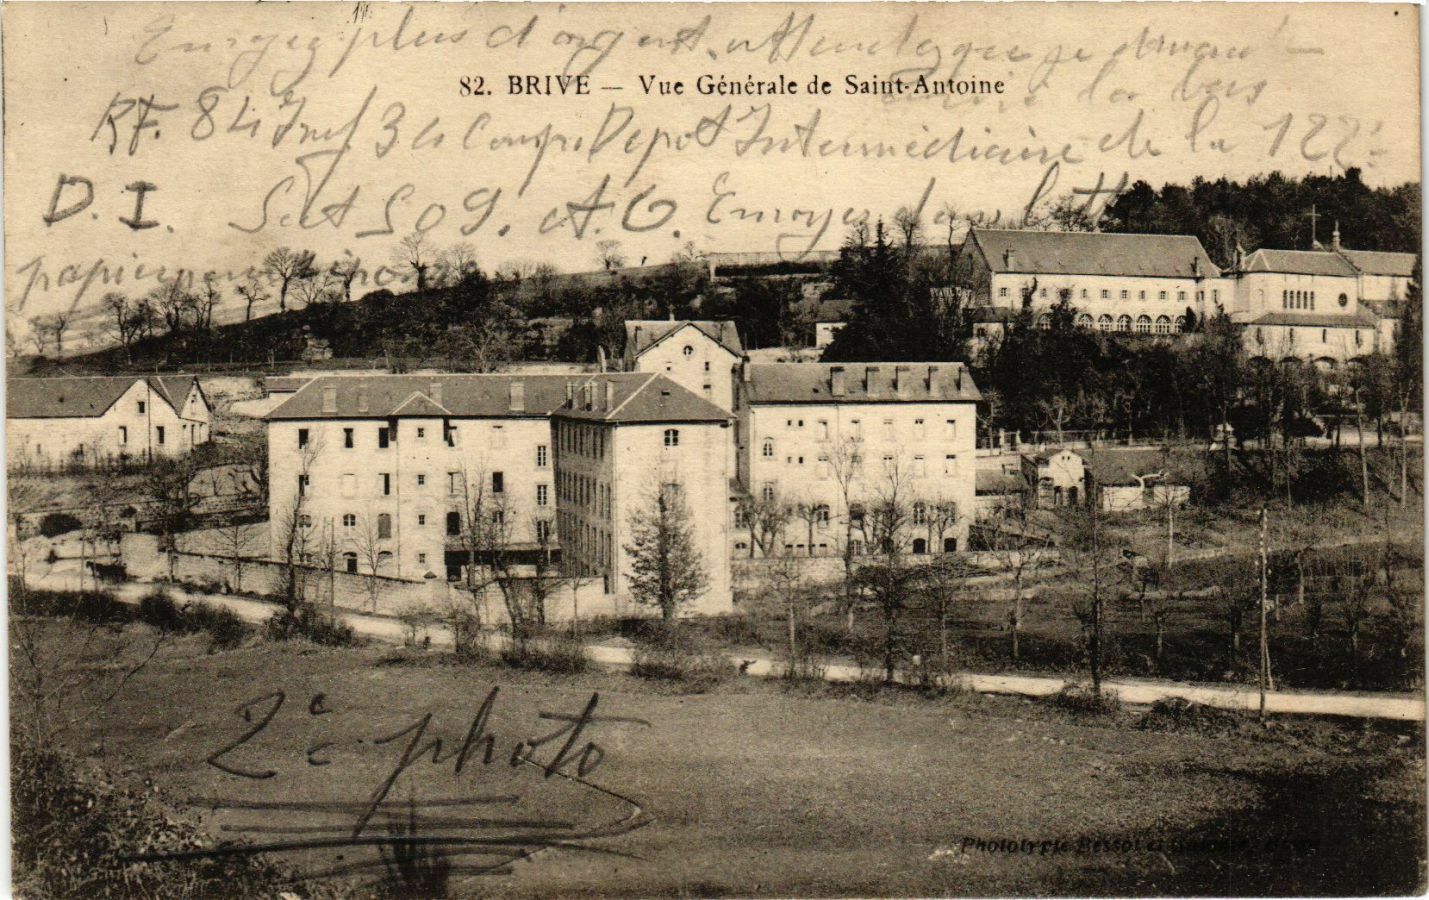 Envoyez plus d'argent. attendez que je demande
82. BRIVE — Vue Générale de Saint-Antoine
la bas
RF. 84 Inf 34 Comp. Depot Intermédiaire de la 122e
D. I. Sect 509. A.G. Envoyez dans lett
papier
2e photo
Phototypie Bessot et